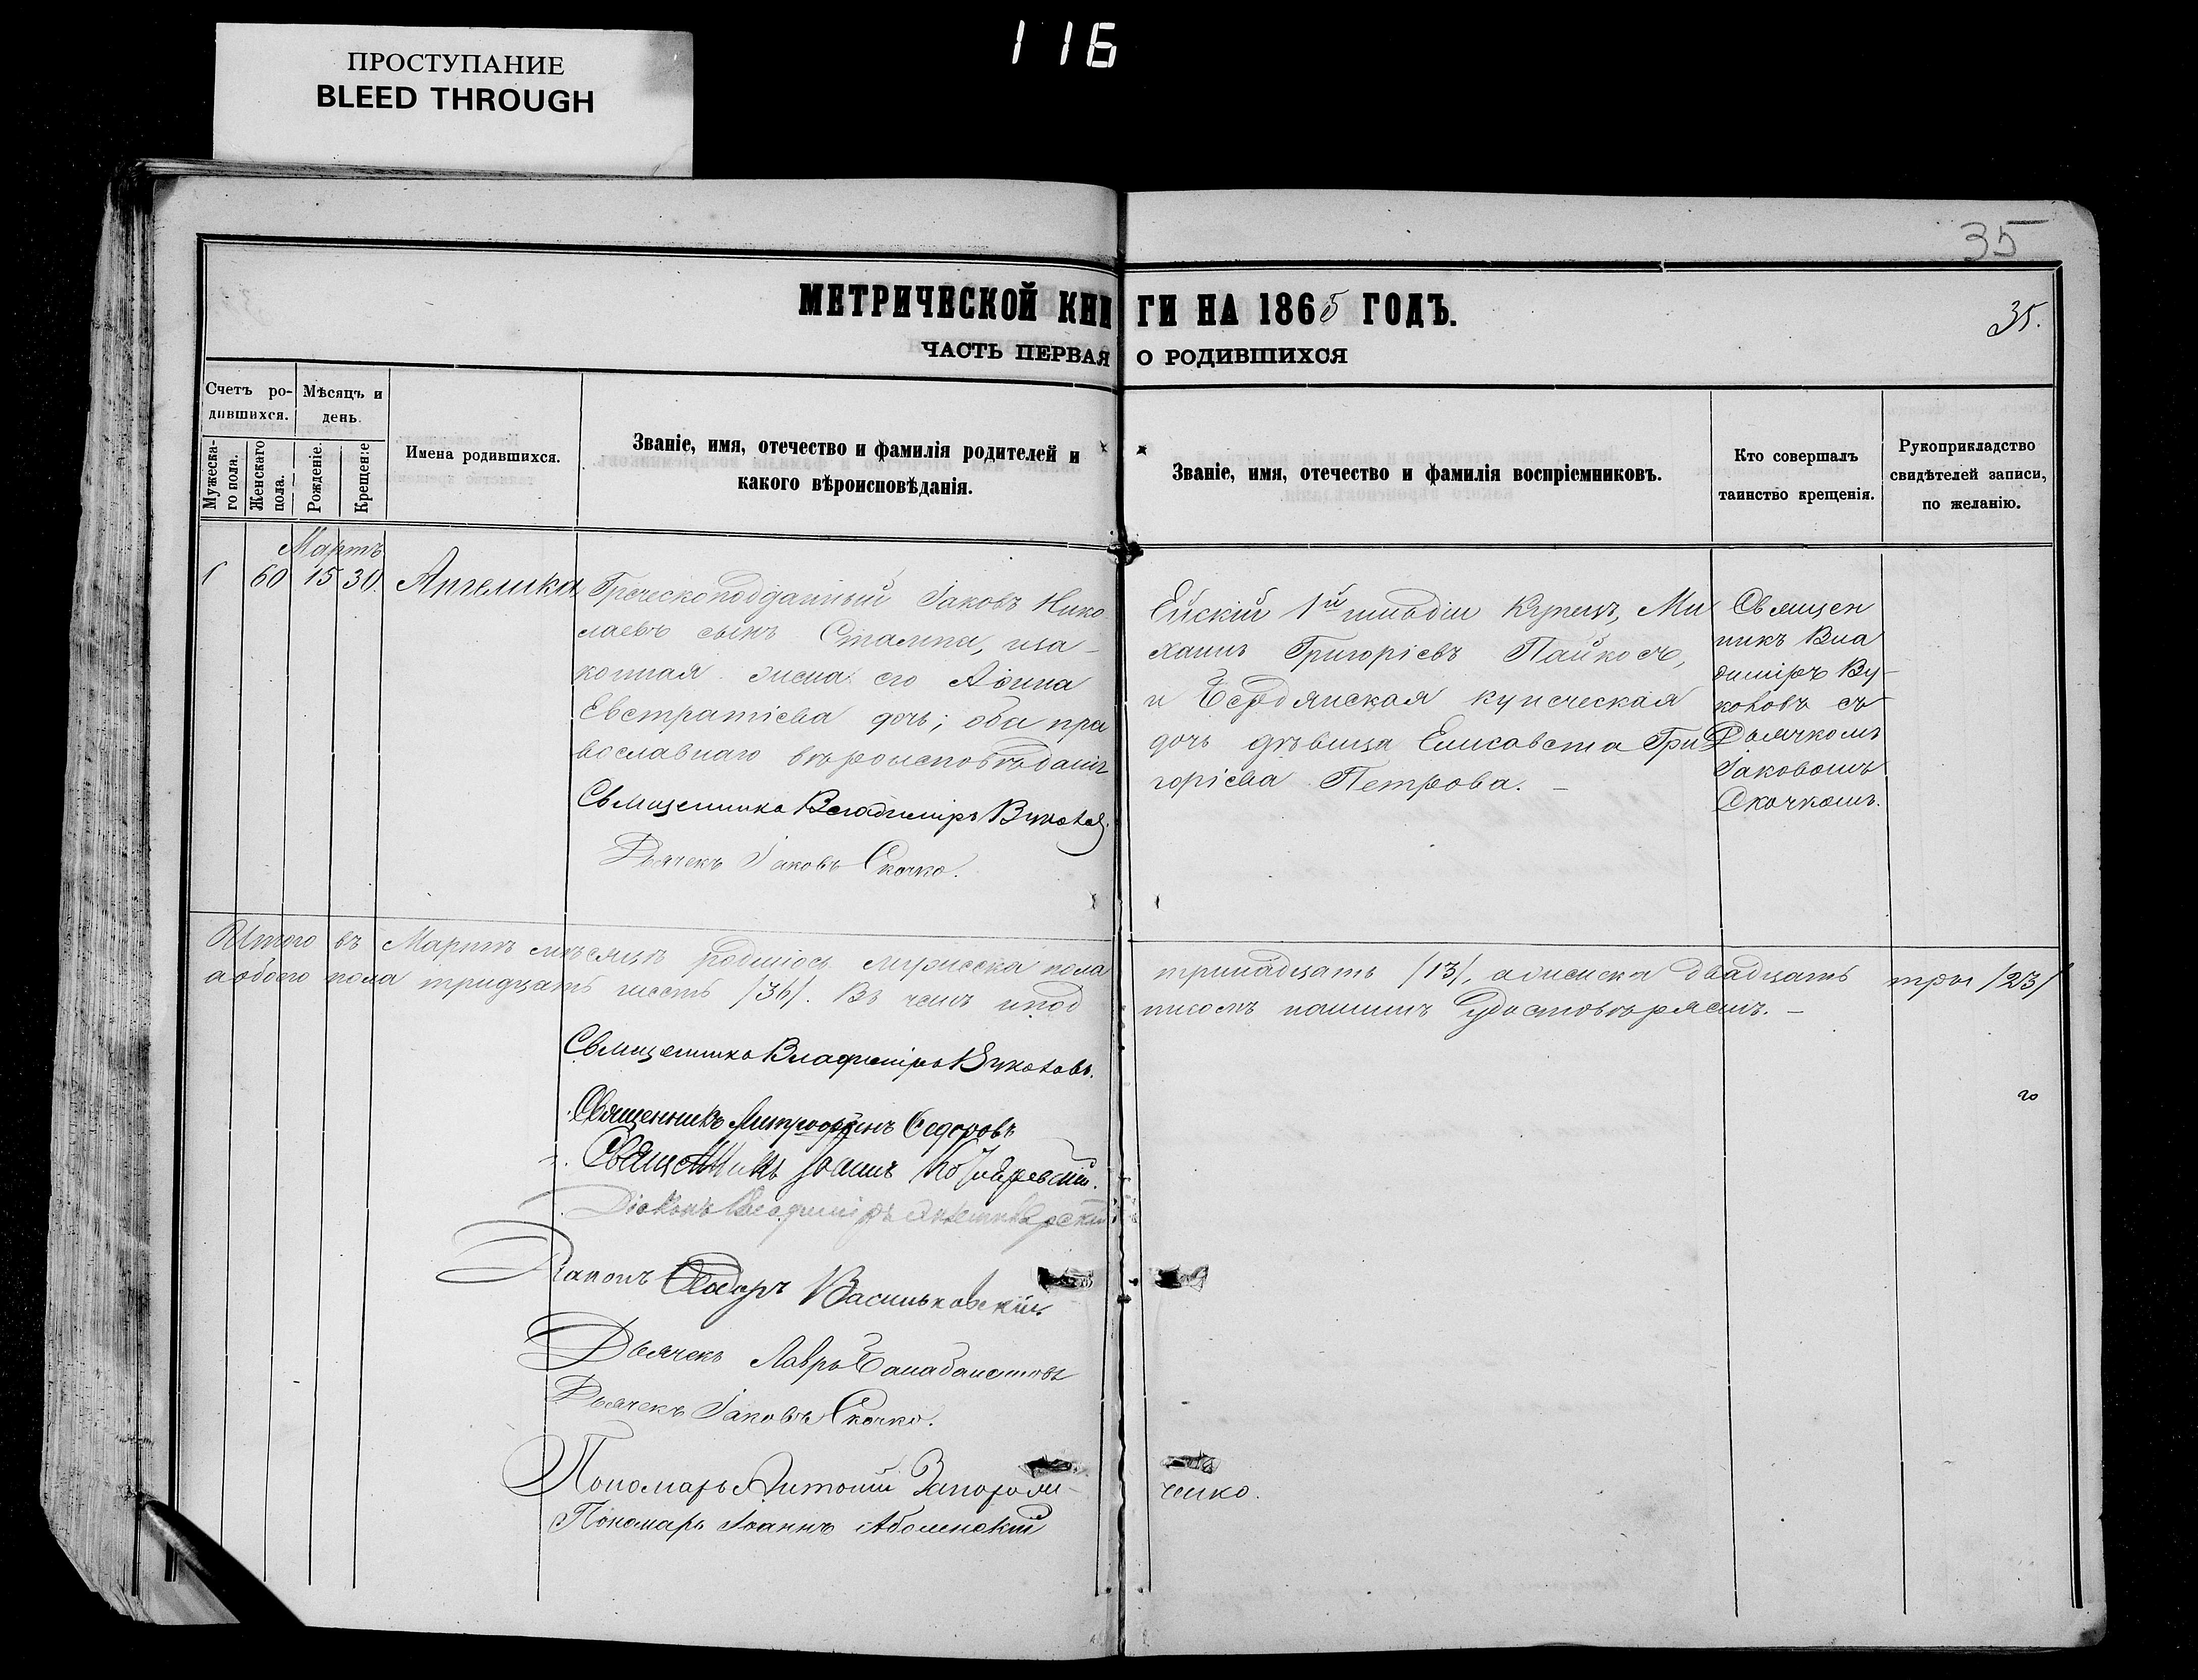 ПРОСТУПАНИЕ
BLEED THROUGH
116
35
МЕТРИЧЕСКОЙ КНИГИ НА 1865 ГОДЪ.
35.
ЧАСТЬ ПЕРВАЯ О РОДИВШИХСЯ
Счетъ ро-
дившихся.
Мужеска-
го пола.
Женскаго
пола.
Мѣсяцъ и
день.
Рожденіе.
Крещеніе
Имена родившихся.
Званіе, имя, отечество и фамилія родителей и
какого вѣроисповѣданія.
Званіе, имя, отечество и фамилія воспріемниковъ.
Кто совершалъ
таинство крещенія.
Рукоприкладство
свидѣтелей записи,
по желанію.
Мартъ
60 15 30.
Ангелика
Греческоподданный Іаковъ Нико
лаевъ сынъ Стампа, иза-
конная жена его Аѳина
Евстратіева дочь; оба пра
вославнаго вѣроисповѣданія
Священникъ Владиміръ Вуковъ.
Дьячекъ Іаковъ Скочко.
Ейскій 1й гильдіи Купецъ, Ми
хаилъ Григорієвъ Пайкосъ,
и Бердянская купеческая
дочь дѣвица Елисавета Гри
горіева Петрова. –
Священ
никъ Вла
диміръ Ву-
ковъ съ
Дьячкомъ
Іаковомъ
Скочкомъ.
Итого въ Мартѣ мѣсяцѣ родилось мужеска пола тринадцать /13/, аженска двадцать три /23/
аобоего пола тридцать шесть /36/. Въ чемъ иподписомъ нашимъ удостовѣряемъ. –
Священникъ Владиміръ Вуковъ.
Священникъ Митрофанъ Ѳедоровъ
Священникъ Іоаннъ
Діаконъ Владиміръ
Діаконъ Ѳедоръ Васильковскій
Дьячекъ Лавръ
Дьячекъ Іаковъ Скочко.
Пономарь Антоній Запорожченко.
Пономарь Іоаннъ Аболенскій